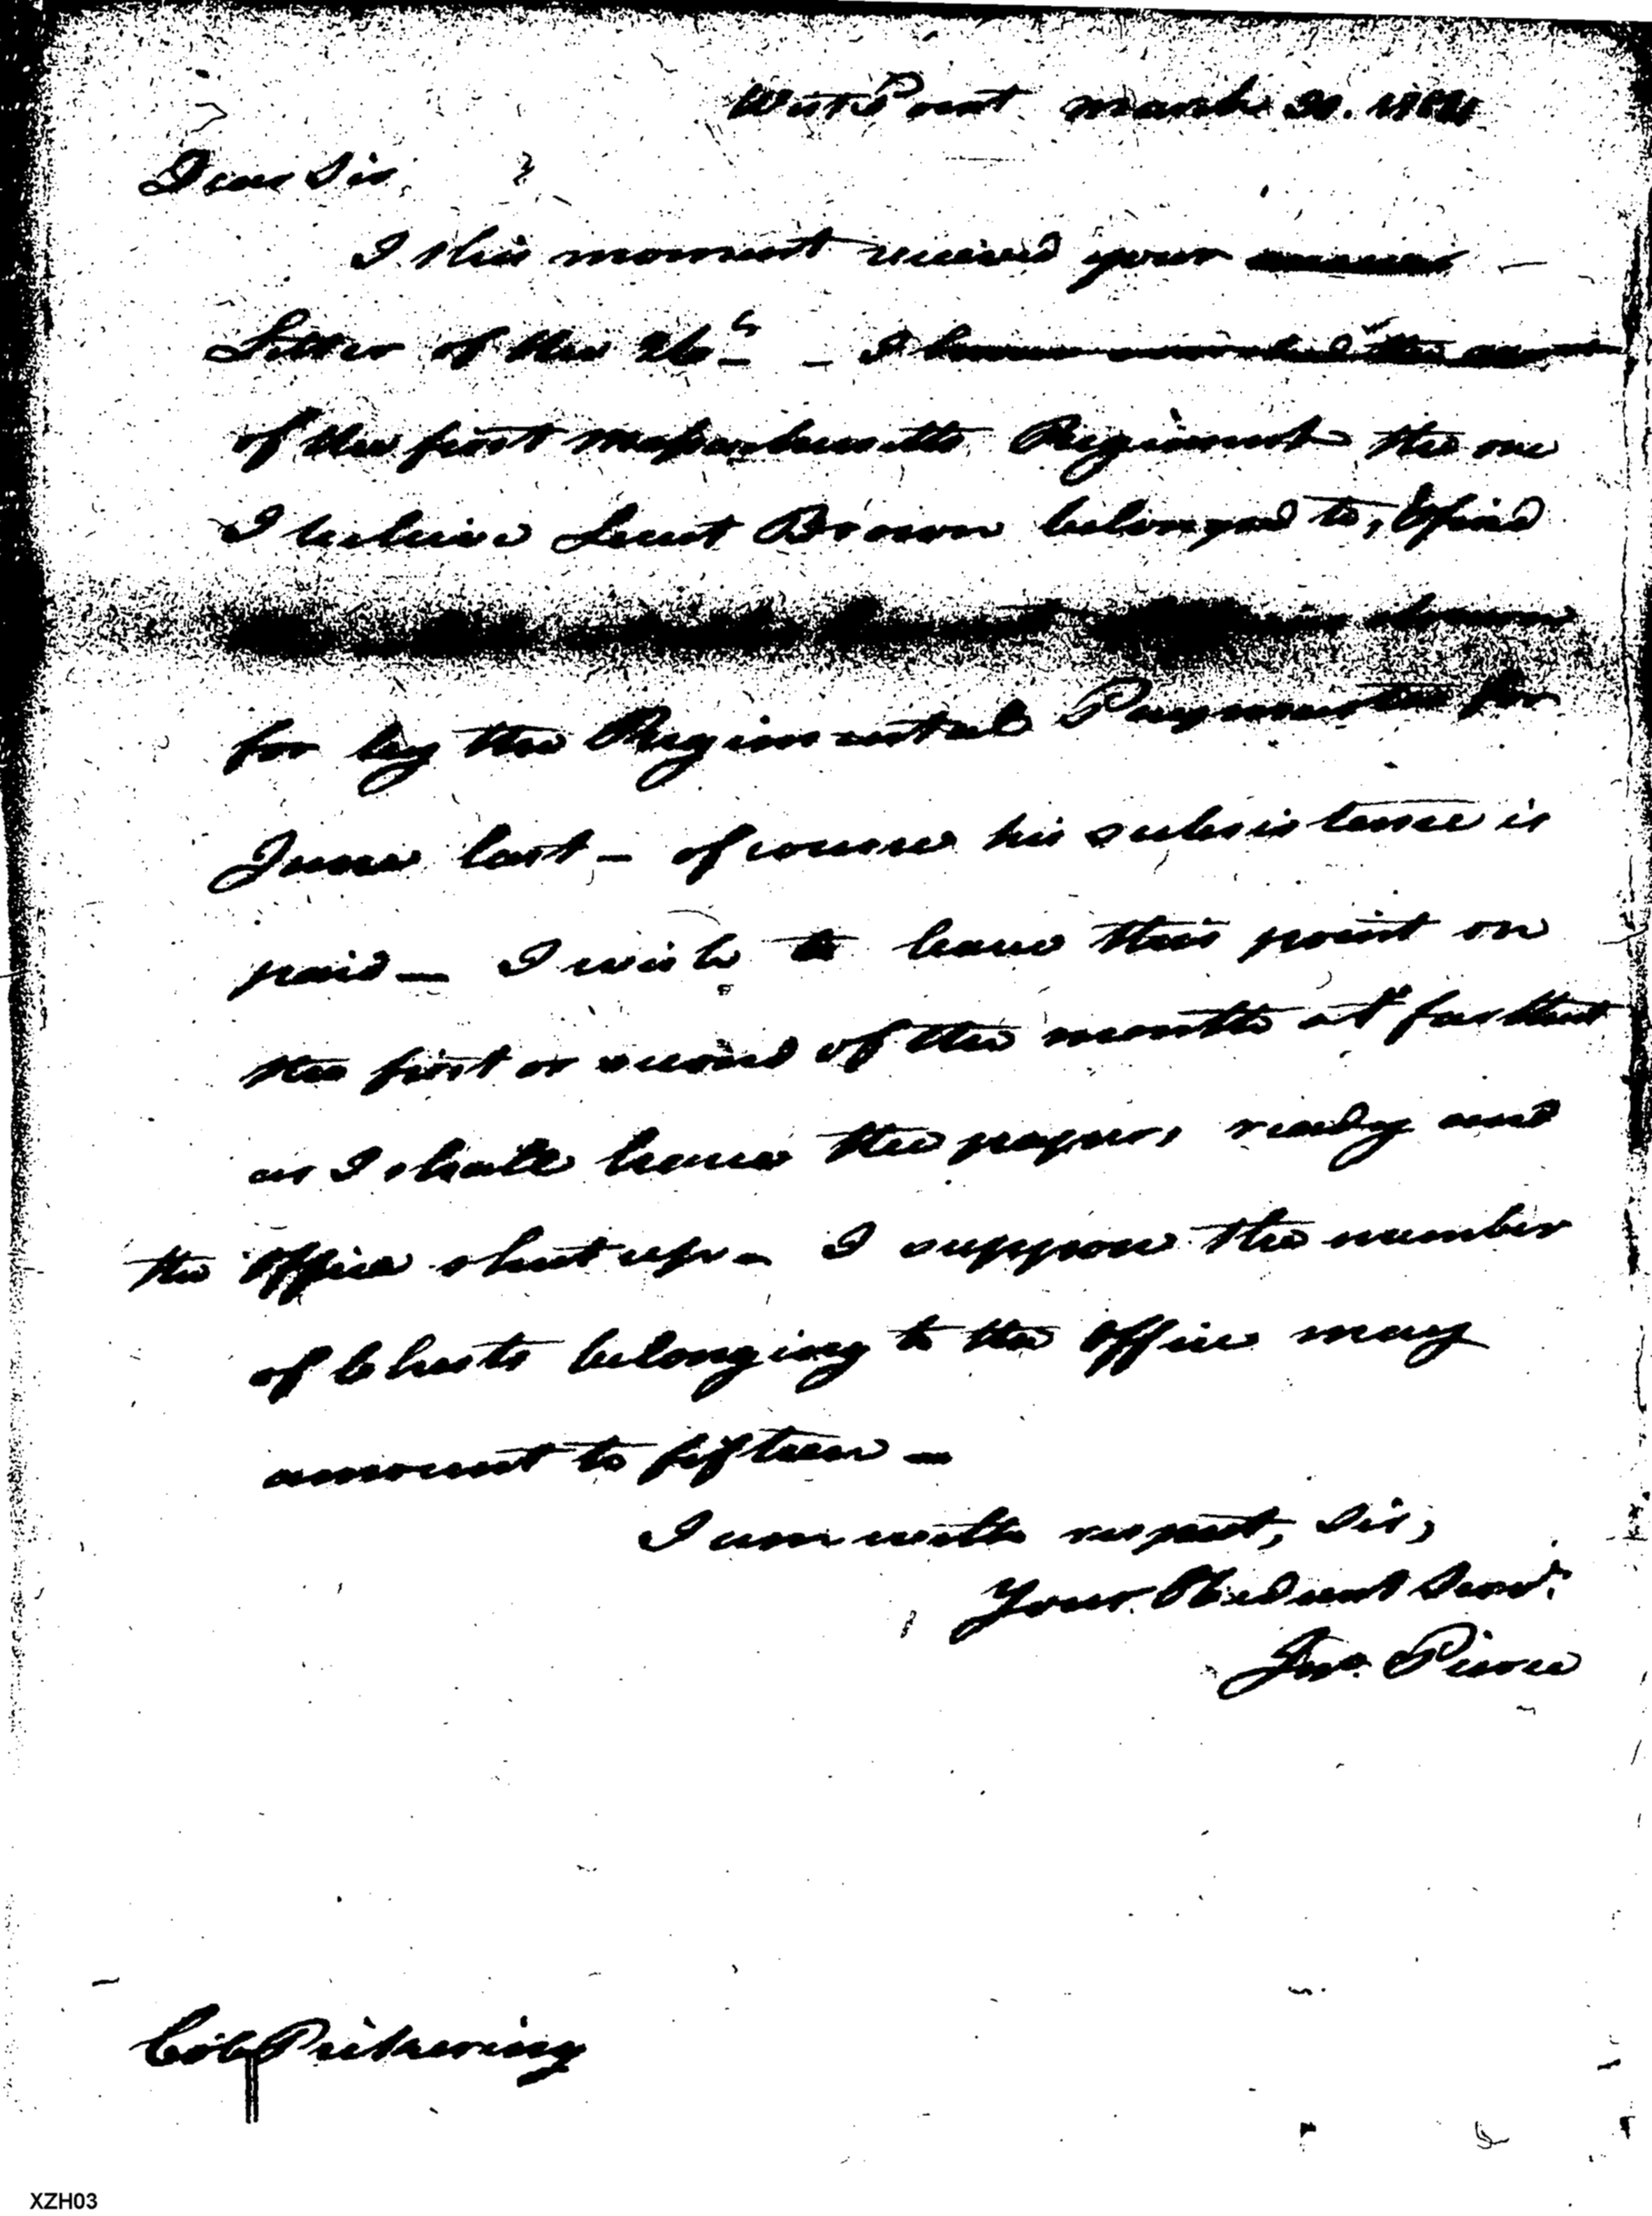 West Point March 1784
Dear Sir,
I this moment received your
Letter of the 26th - I have the
of the first Massachusetts Regiment the one
I believe Leut Brown belonged to, & find
drawn
for by the Regimental Paymaster for
June last - of course his subsistence is
paid - I wish to leave this point on
the first or second of the month at farthest
as I shall have the papers ready and
the Office shut up - I suppose the number
of Chests belonging to the Office may
amount to fifteen -
I am with respect, Sir,
Your Obedient Servt.
Jno. Pierce
Col Pickering
XZH03